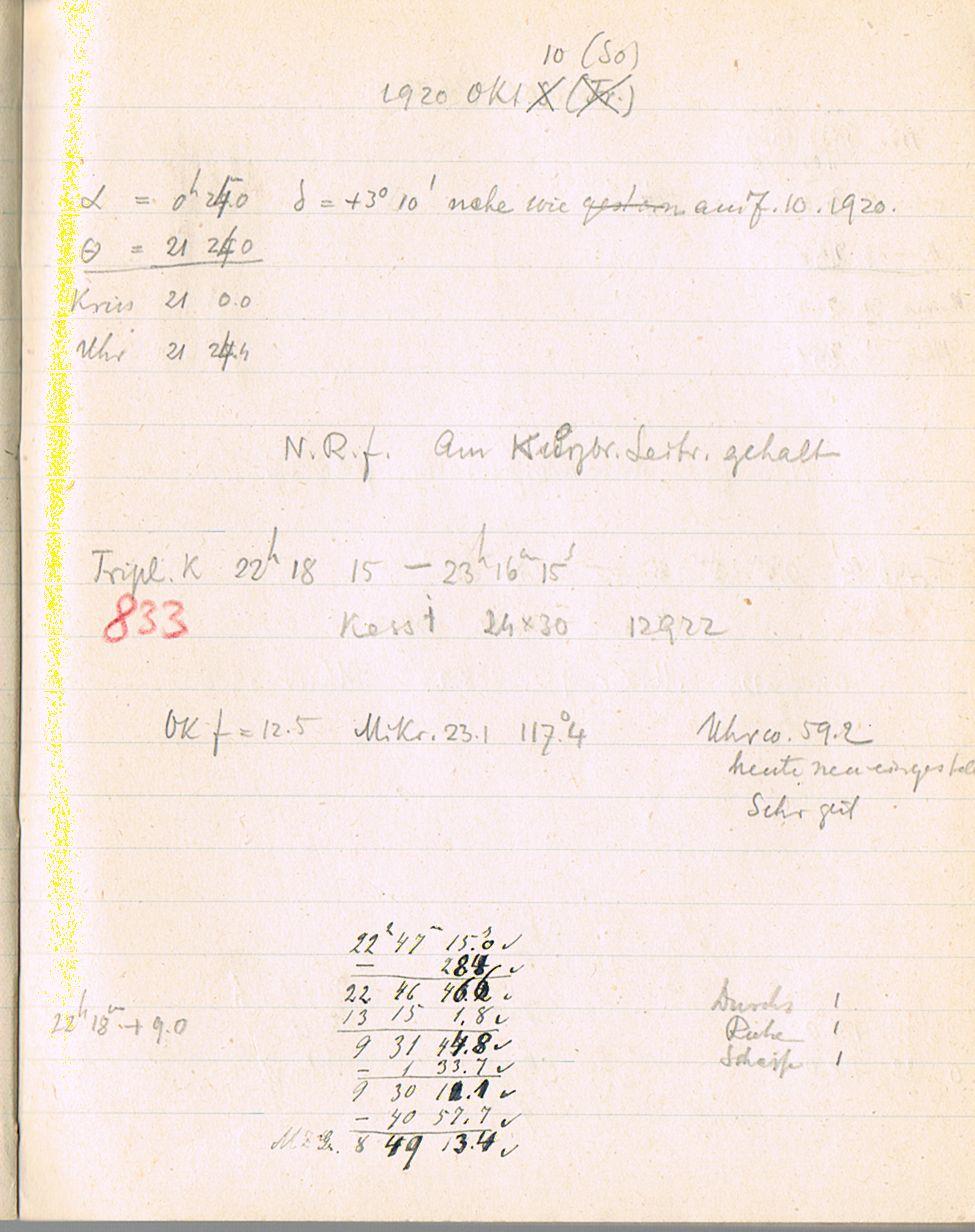 10 (So)
1920 OKT 8 (Fr.)
α = 0h 24.0 δ = +3° 10' nahe wie gestern am 7.10.1920.
Θ = 21 24.0
Kreis 21 0.0
Uhr 21 24.4
N.R.f. Am Leitr. gehalt
Tripl. K 22h 18 15 — 23h 16m 15s
833 Kass 1 24×30 12922
OK f = 12.5 Mikr. 23.1 117°.4 Uhrco. 59.2
heute neu eingestel
Sehr gut
22h 47m 15.s0 ✓
— 28.4 ✓
22 46 46.6 ✓
13 15 1.8 ✓
22h 18m + 9.0
9 31 44.8 ✓
— 1 33.7 ✓
9 30 11.1 ✓
— 40 57.7 ✓
8 49 13.4 ✓
Durchs 1
Ruhe 1
Schärfe 1